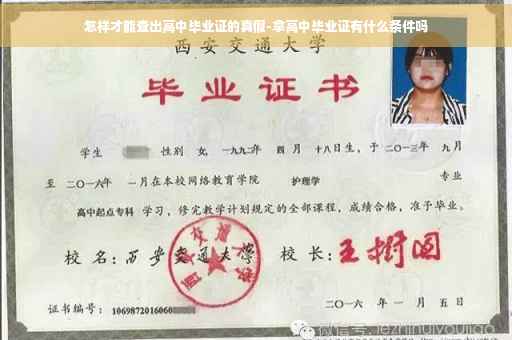 怎样才能查出高中毕业证的真假-拿高中毕业证有什么条件吗
西安交通大学
毕业证书
学生 性别 女, 一九九二年 四月 十八日生, 于 二〇一三年 九月
至 二〇一六年 一月在本校网络教育学院 护理学 专业
高中起点专科 学习, 修完教学计划规定的全部课程, 成绩合格, 准予毕业。
校 名: 西安交通大学 校 长: 王树国
西安交通大学
证书编号: 1069872016060
二〇一六 年 一 月 五 日
微信号: jiezhihuiyoujiao